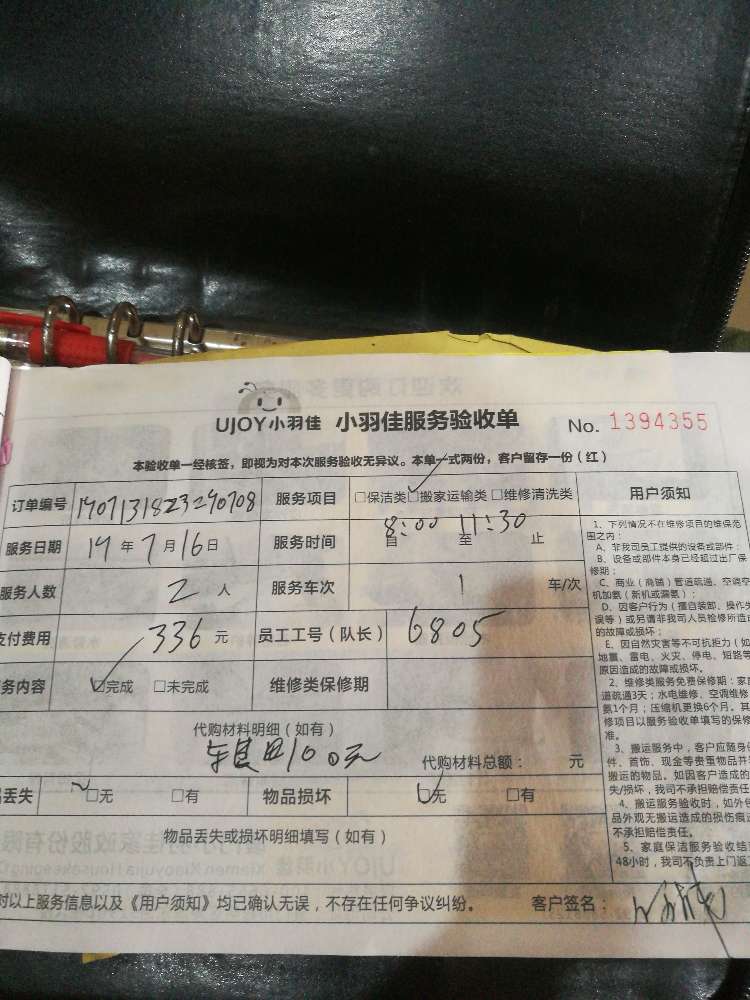 UJOY小羽佳 小羽佳服务验收单 No. 1394355
本验收单一经核签，即视为对本次服务验收无异议。本单一式两份，客户留存一份（红）
订单编号 服务项目 □保洁类 □搬家运输类 □维修清洗类 用户须知
服务日期 19年7月16日 服务时间 8:00 自 至 11:30 止
服务人数 2 人 服务车次 1 车/次
支付费用 336 元 员工工号（队长） 6805
务内容 □完成 □未完成 维修类保修期
代购材料明细（如有）
100元 代购材料总额： 元
丢失 □无 □有 物品损坏 □无 □有
物品丢失或损坏明细填写（如有）
对以上服务信息以及《用户须知》均已确认无误，不存在任何争议纠纷。 客户签名：
1、下列情况不在维修项目的维保范
围之内：
A、非我司员工提供的设备或部件；
B、设备或部件本身已经超过出厂保
修期；
C、商业（商铺）管道疏通、空调空
机加氨（新机或漏氨）；
D、因客户行为（擅自装卸、操作失
误等）或另请非我司人员检修所造成
的故障或损坏；
E、因自然灾害等不可抗拒力（如
地震、雷电、火灾、停电、短路等
原因造成的故障或损坏。
2、维修类服务免费保修期：家庭
道疏通3天；水电维修、空调维修
氨1个月；压缩机更换6个月。其
修项目以服务验收单填写的保修
准。
3、搬运服务中，客户应随身保
件、首饰、现金等贵重物品并
搬运的物品。如因客户造成的
失/损坏，我司不承担赔偿责任
4、搬运服务验收时，如外包
品外观无搬运造成的损伤痕迹
不承担赔偿责任。
5、家庭保洁服务验收结
48小时，我司不负责上门返工